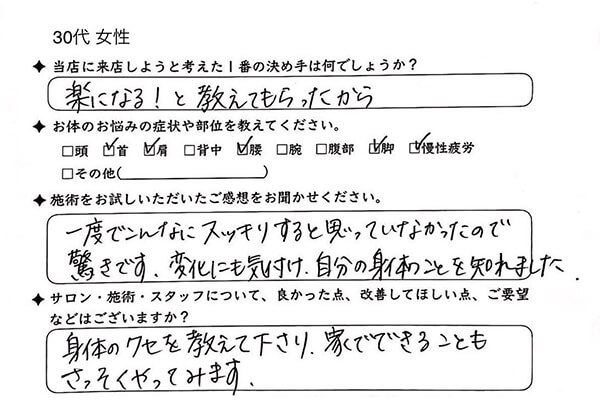 30代 女性
✦ 当店に来店しようと考えた1番の決め手は何でしょうか?
楽になる!と教えてもらったから
✦ お体のお悩みの症状や部位を教えてください。
□頭 ☑首 ☑肩 □背中 ☑腰 □腕 □腹部 ☑脚 ☑慢性疲労
□その他( )
✦ 施術をお試しいただいたご感想をお聞かせください。
一度でこんなにスッキリすると思っていなかったので
驚きです、変化にも気付け、自分の身体のことを知れました.
✦ サロン・施術・スタッフについて、良かった点、改善してほしい点、ご要望
などはございますか?
身体のクセを教えて下さり、家でできることも
さっそくやってみます、